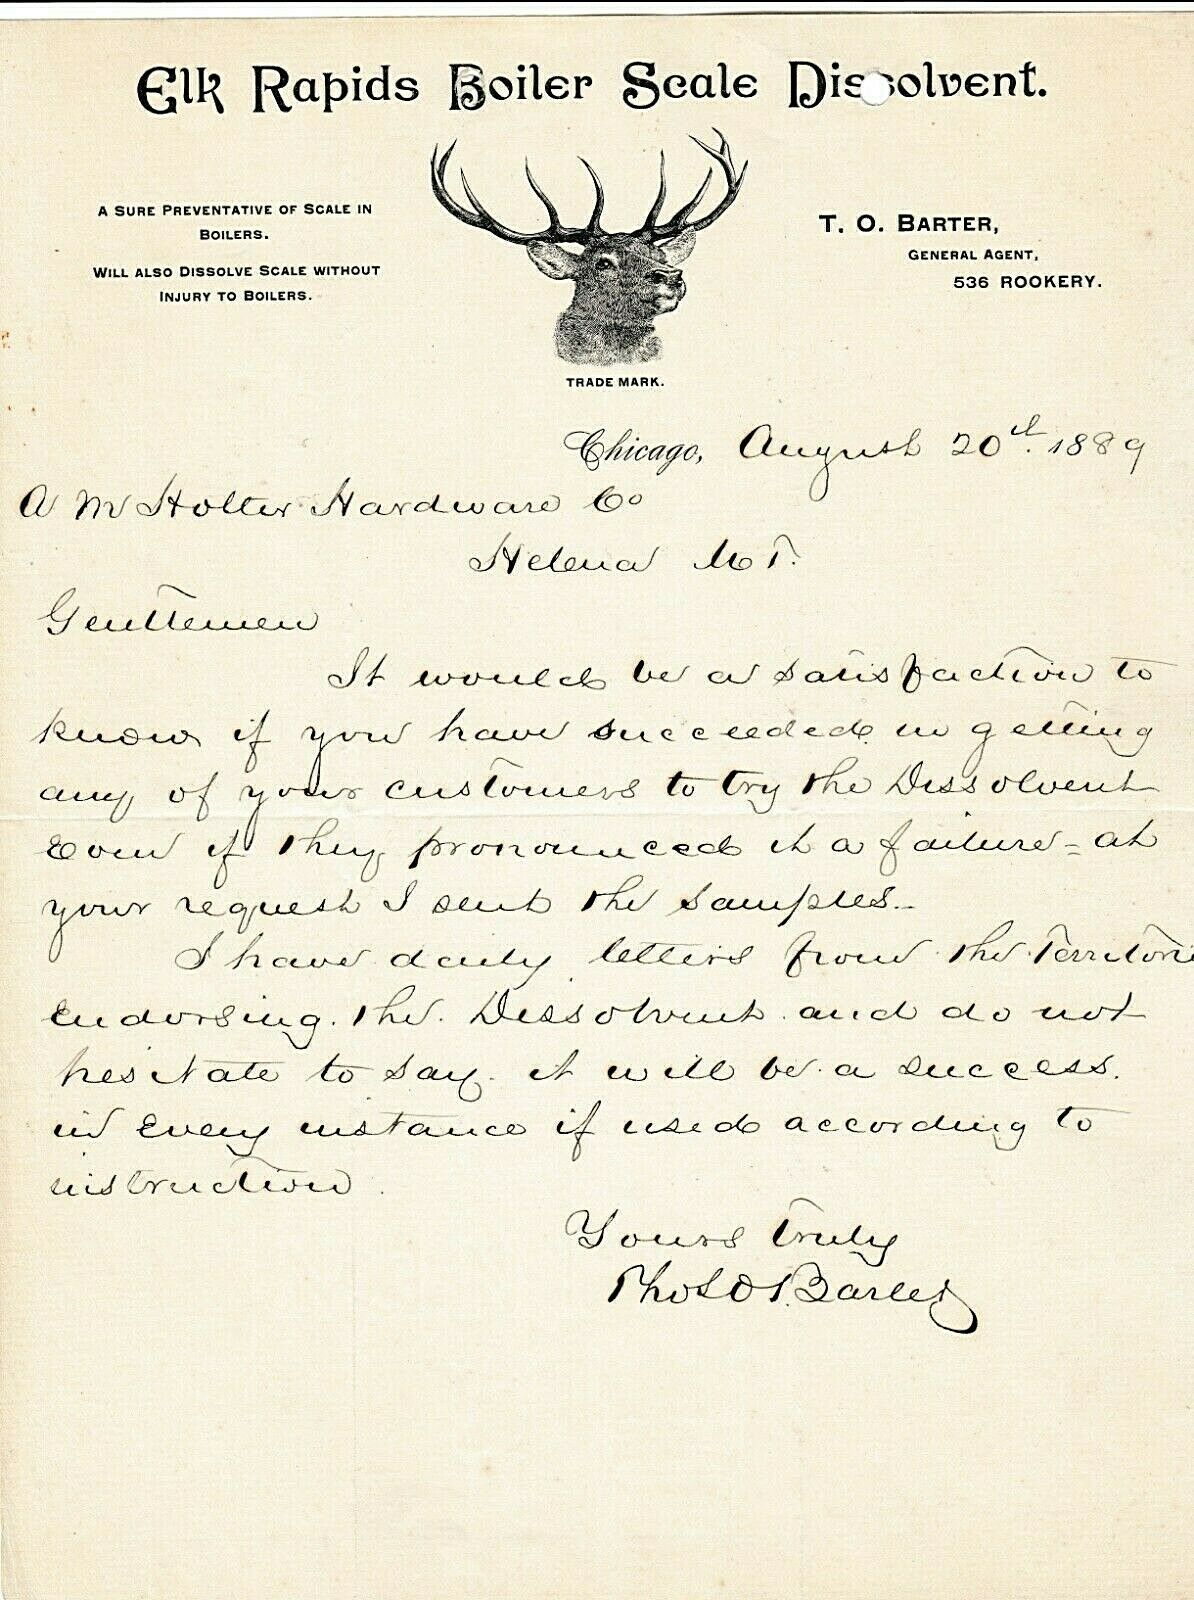 Elk Rapids Boiler Scale Dissolvent.
A Sure Preventative of Scale in
Boilers.
Will also Dissolve Scale without
Injury to Boilers.
T. O. Barter,
General Agent,
536 Rookery.
Trade Mark.
Chicago, August 20th. 1889
A M Holter Hardware Co
Helena M T.
Gentlemen
It would be a satisfaction to
know if you have succeeded in getting
any of your customers to try the Dissolvent
Even if they pronounced it a failure - at
your request I sent the samples.
I have daily letters from the Territorie
endorsing the Dissolvent and do not
hesitate to say it will be a success.
in Every instance if used according to
instruction.
Yours Truly
Thos O Barter